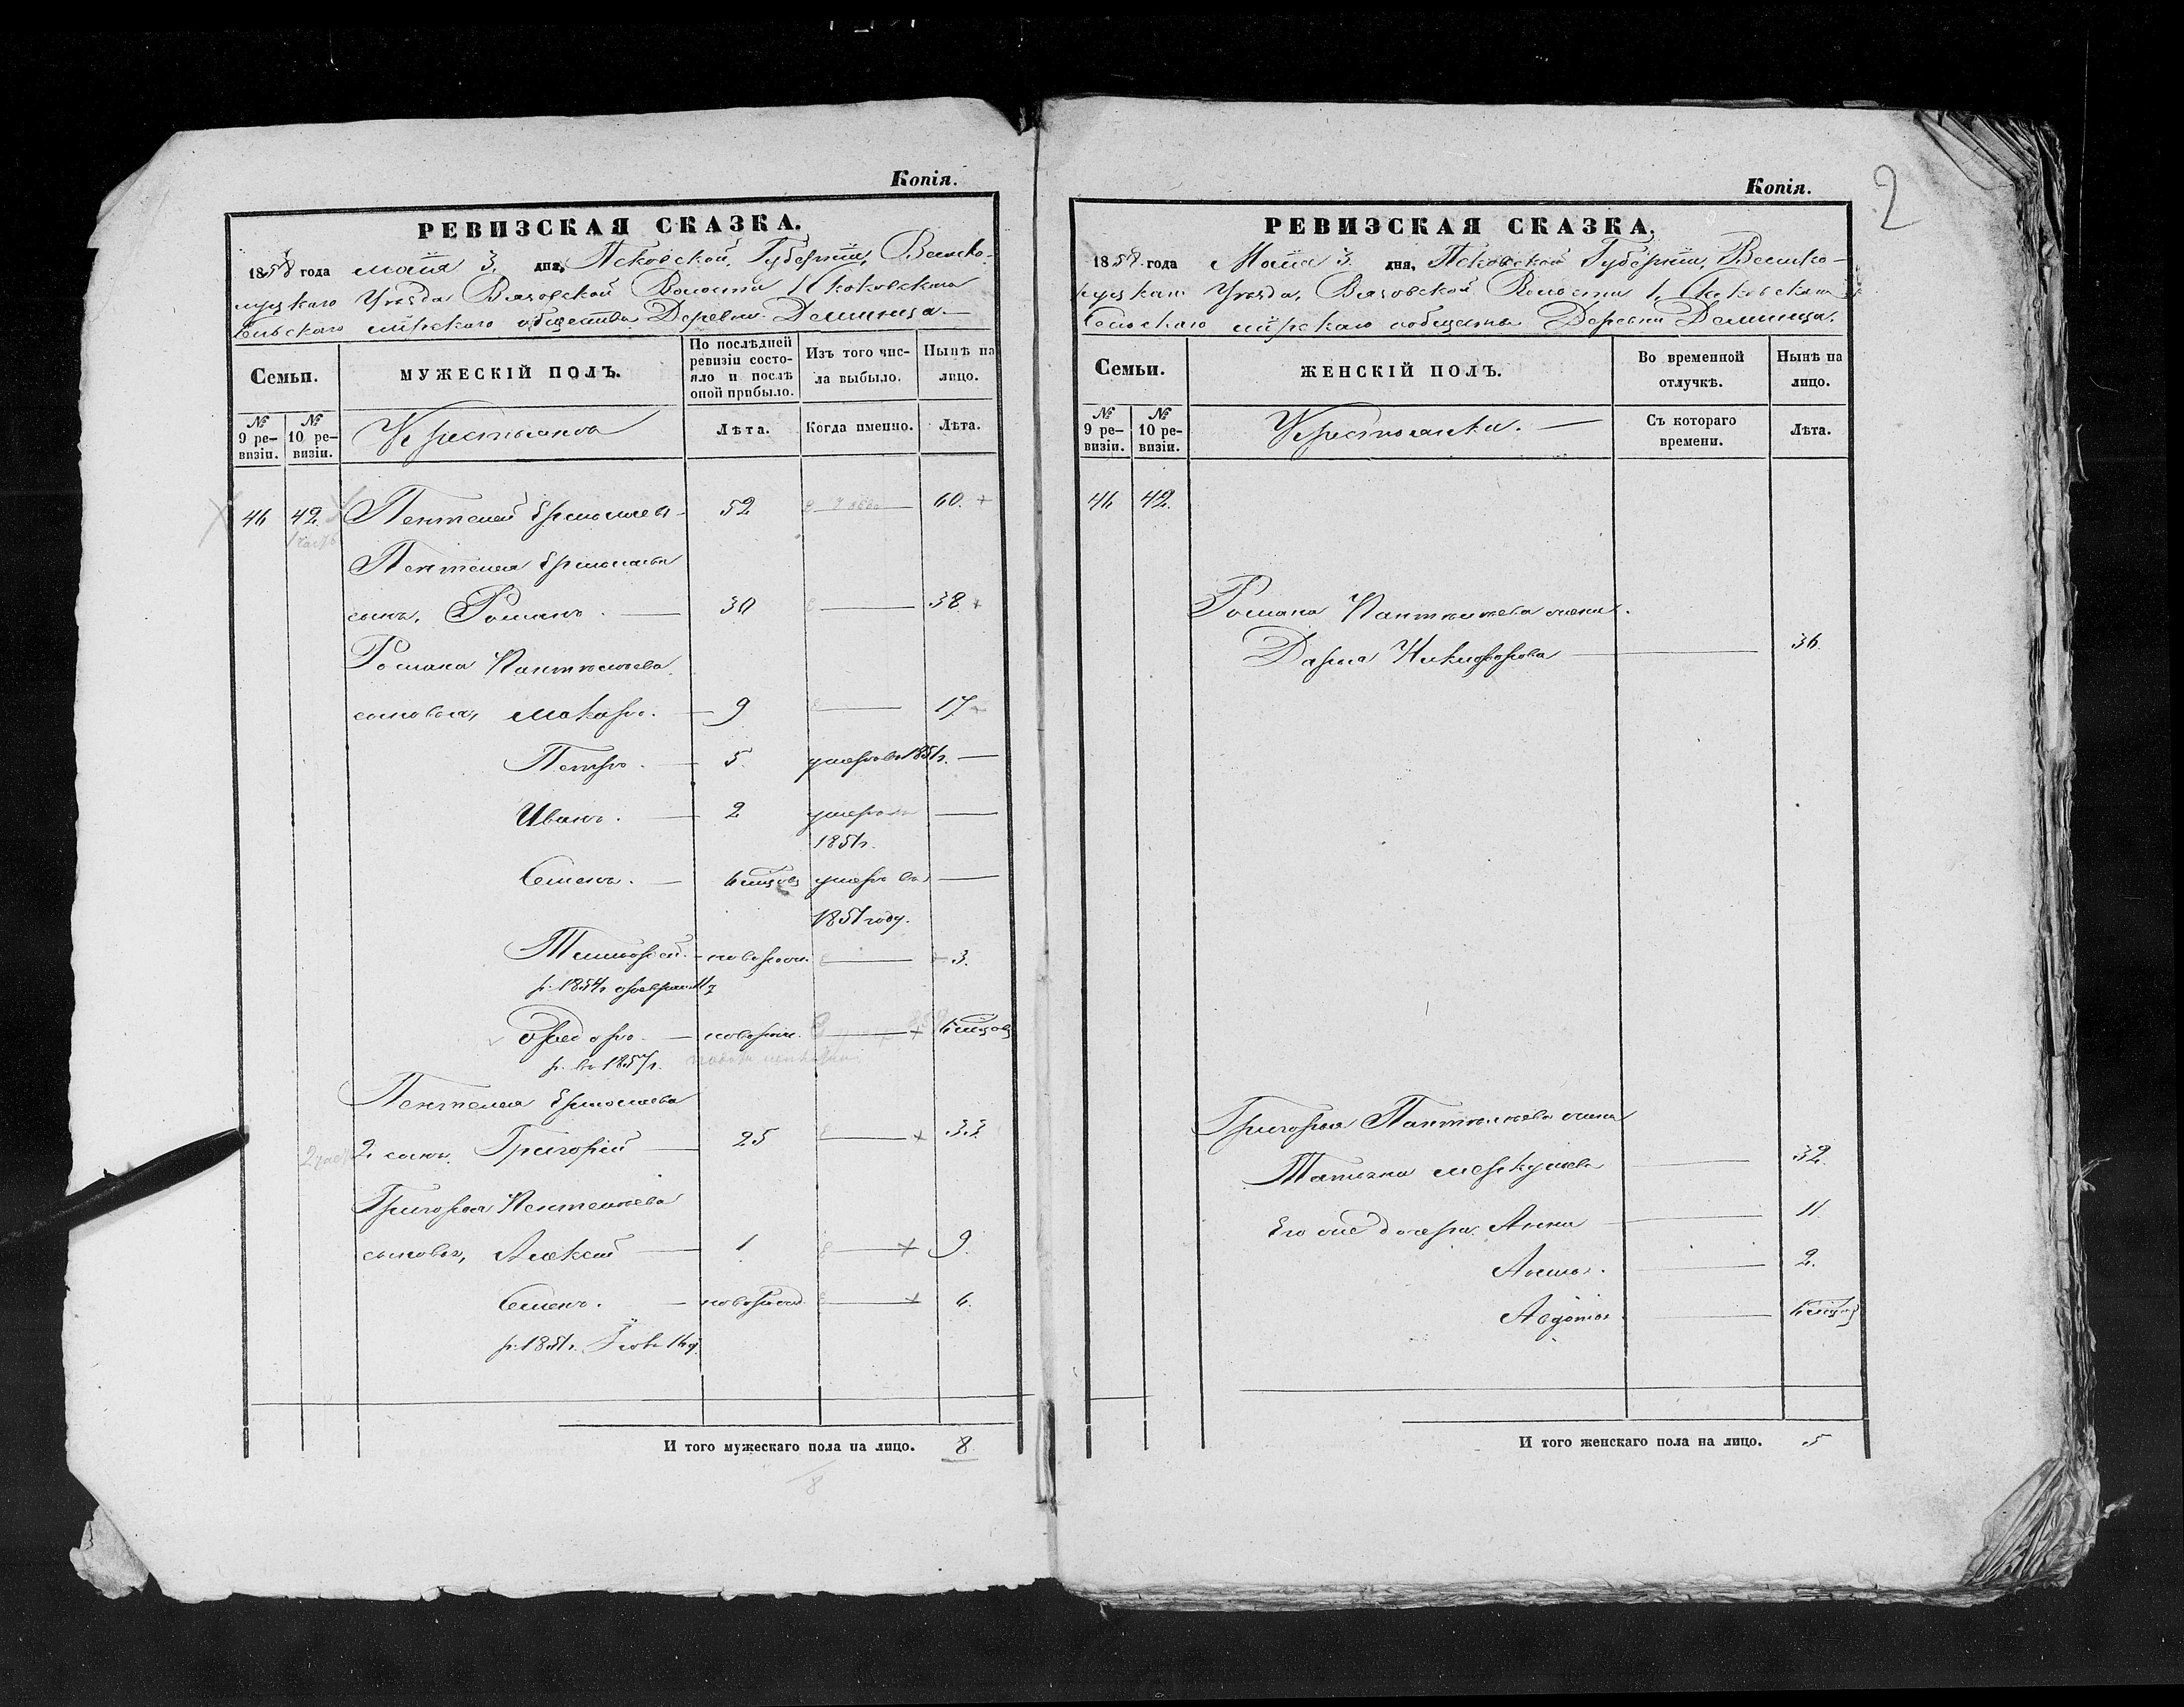 Копія.
РЕВИЗСКАЯ СКАЗКА.
1858 года Маія 3. дня, Псковской Губерніи, Велико-
луцкаго Уѣзда Вязовской Волости
Сельскаго мірскаго общества Деревни Деминица.
Семьи.
МУЖЕСКІЙ ПОЛЪ.
По послѣдней ревизіи состо-
яло и послѣ оной прибыло.
Изъ того чис-
ла выбыло.
Нынѣ на
лицо.
№ 9 ре-
визіи.
№ 10 ре-
визіи.
Крестьянъ
Лѣта.
Когда именно.
Лѣта.
46 42 Пентелей Ермолаевъ 52 60.
Пентелея Ермолаева
сынъ, Романъ. 30 38
Романа Пантелѣева
сыновья, Макаръ. 9 17
Петръ. 5. умеръ въ 1851г.
Иванъ. 2 умеръ въ
1851г.
Семенъ. умеръ въ
1851 году.
Тимофей. новорож. 3.
р. 1854г.
Ѳедоръ. новорож.
р. въ 1857г.
Пентелея Ермолаева
2. сынъ. Григорій 25 33.
Григорья Пентелѣева
сыновья, Алексѣй 1 9.
Семенъ. новорожд. 6.
р. 1851г.
И того мужескаго пола на лицо. 8
8
Копія.
2
РЕВИЗСКАЯ СКАЗКА.
1858 года Маія 3. дня, Псковской Губерніи, Велико-
луцкаго Уѣзда, Вязовской Волости
Сельскаго мірскаго общества Деревни Деминица.
Семьи.
ЖЕНСКІЙ ПОЛЪ.
Во временной
отлучкѣ.
Нынѣ на
лицо.
№ 9 ре-
визіи.
№ 10 ре-
визіи.
Крестьянки.
Съ котораго
времени.
Лѣта.
46 42.
Романа Пантелѣева жена
Дарья Никифорова 36.
Григорья Пантелѣева жена
Татьяна Меркульева 32.
Его же дочери. Анна 11.
Анна. 2.
Авдотья.
И того женскаго пола на лицо. 5